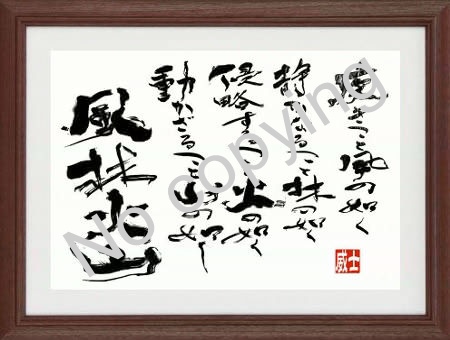 疾きこと風の如く
静かなること林の如く
侵略すること火の如く
動かざること山の如し
風林火山
威士
No copying